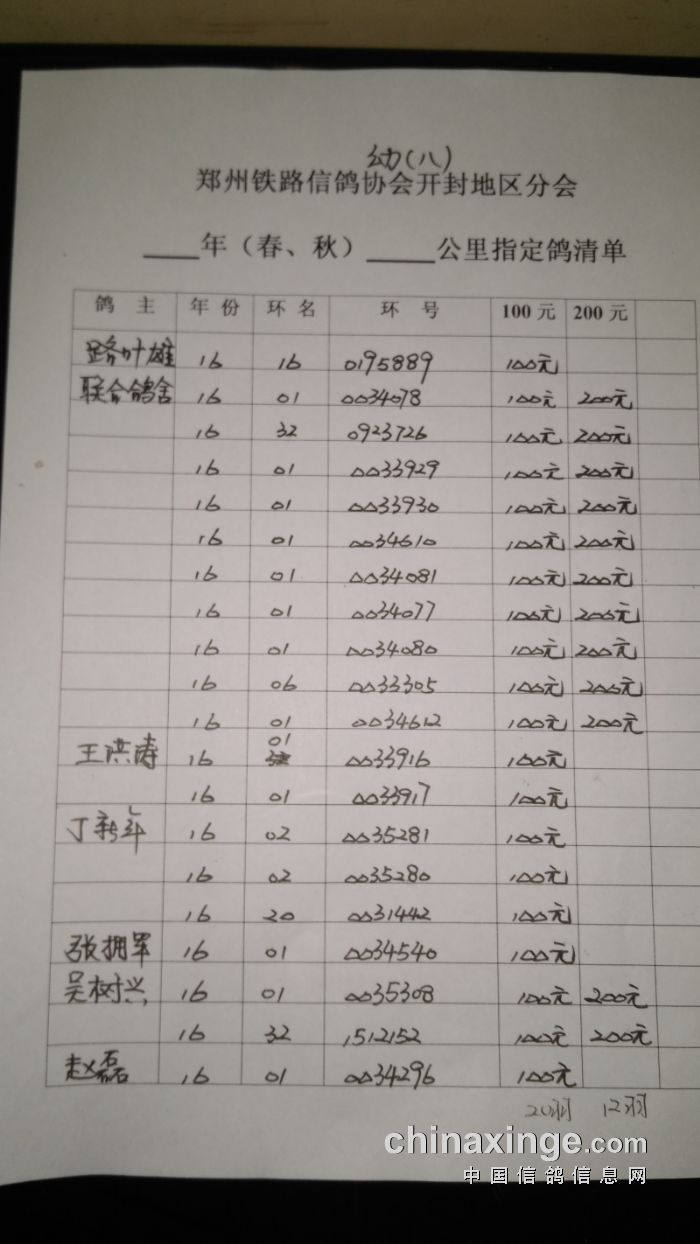 幼(八)
郑州铁路信鸽协会开封地区分会
____年（春、秋）_____公里指定鸽清单
鸽 主 年 份 环 名 环 号 100元 200元
路叶雄 16 16 0195889 100元
联合鸽舍 16 01 0034078 100元 200元
16 32 0923726 100元 200元
16 01 0033929 100元 200元
16 01 0033930 100元 200元
16 01 0034610 100元 200元
16 01 0034081 100元 200元
16 01 0034077 100元 200元
16 01 0034080 100元 200元
16 06 0033305 100元 200元
16 01 0034612 100元 200元
01
王洪涛 16 0033916 100元
16 01 0033917 100元
丁新年 16 02 0035281 100元
16 02 0035280 100元
16 20 0031442 100元
张拥军 16 01 0034540 100元
吴树兴 16 01 0035308 100元 200元
16 32 1512152 100元 200元
赵磊 16 01 0034296 100元
20羽 12羽
chinaxinge.com
中国信鸽信息网